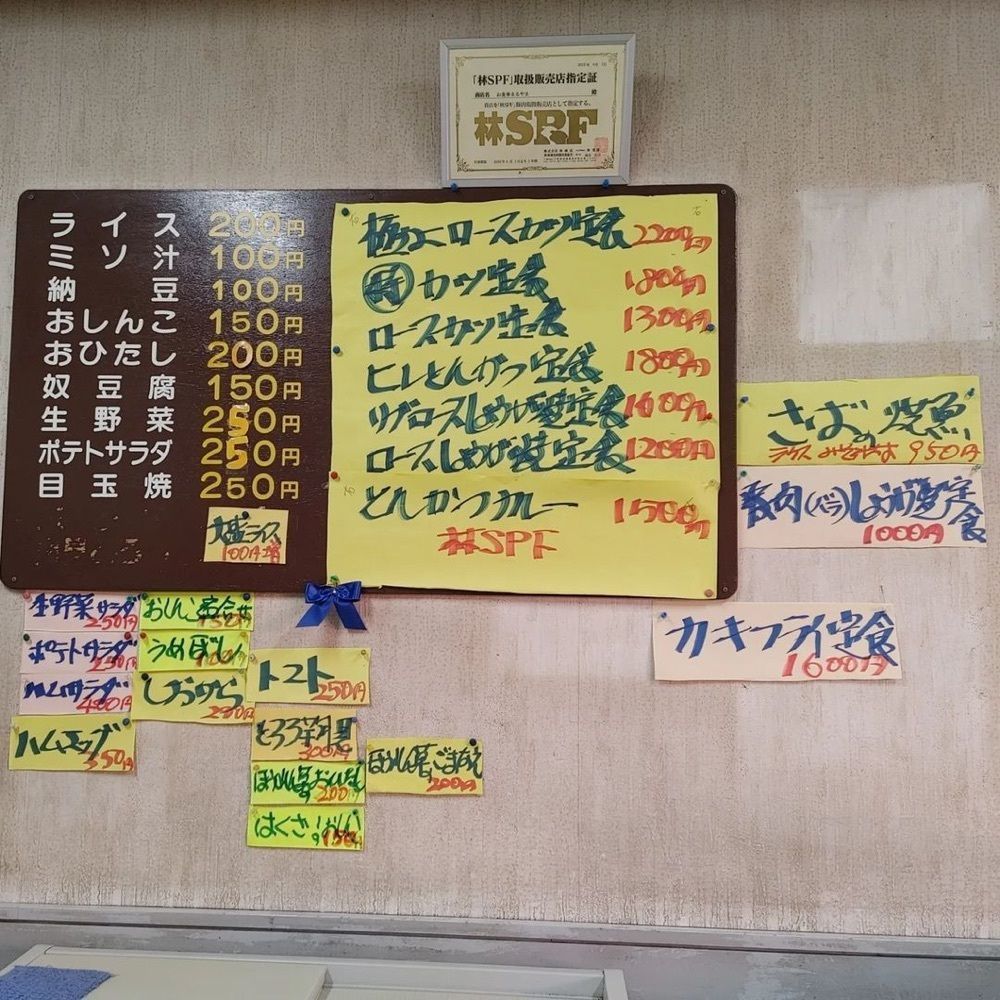 「林SPF」取扱販売店指定証
林SPF
ライス 200円
ミソ汁 100円
納豆 100円
おしんこ 150円
おひたし 200円
奴豆腐 150円
生野菜 250円
ポテトサラダ 250円
目玉焼 250円
大盛ライス
100円増
極上ロースカツ定食 2200円
特カツ定食 1800円
ロースカツ定食 1300円
ヒレとんかつ定食 1800円
リブロースしょうが焼定食 1600円
ロースしょうが焼定食 1200円
とんかつカレー 1500円
林SPF
さばの焼魚
950円
豚肉(バラ)しょうが焼定食
1000円
カキフライ定食
1600円
生野菜サラダ
250円
ポテトサラダ
250円
ハムサラダ
400円
ハムエッグ
350円
おしんこ盛合せ
うめぼし
100円
しおから
200円
トマト
250円
とろろ芋
300円
ほうれん草おひたし
200円
ほうれん草ごまあえ
200円
はくさい
150円